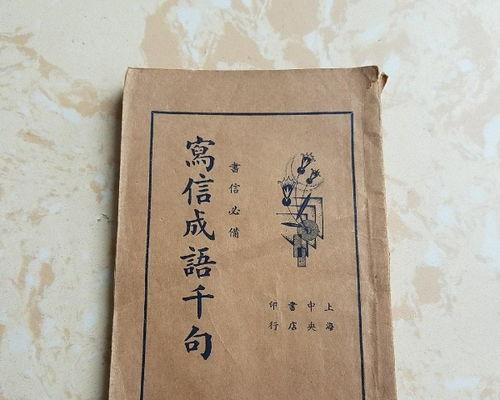 書信必備
寫信成語千句
上海
中央
書店
印行